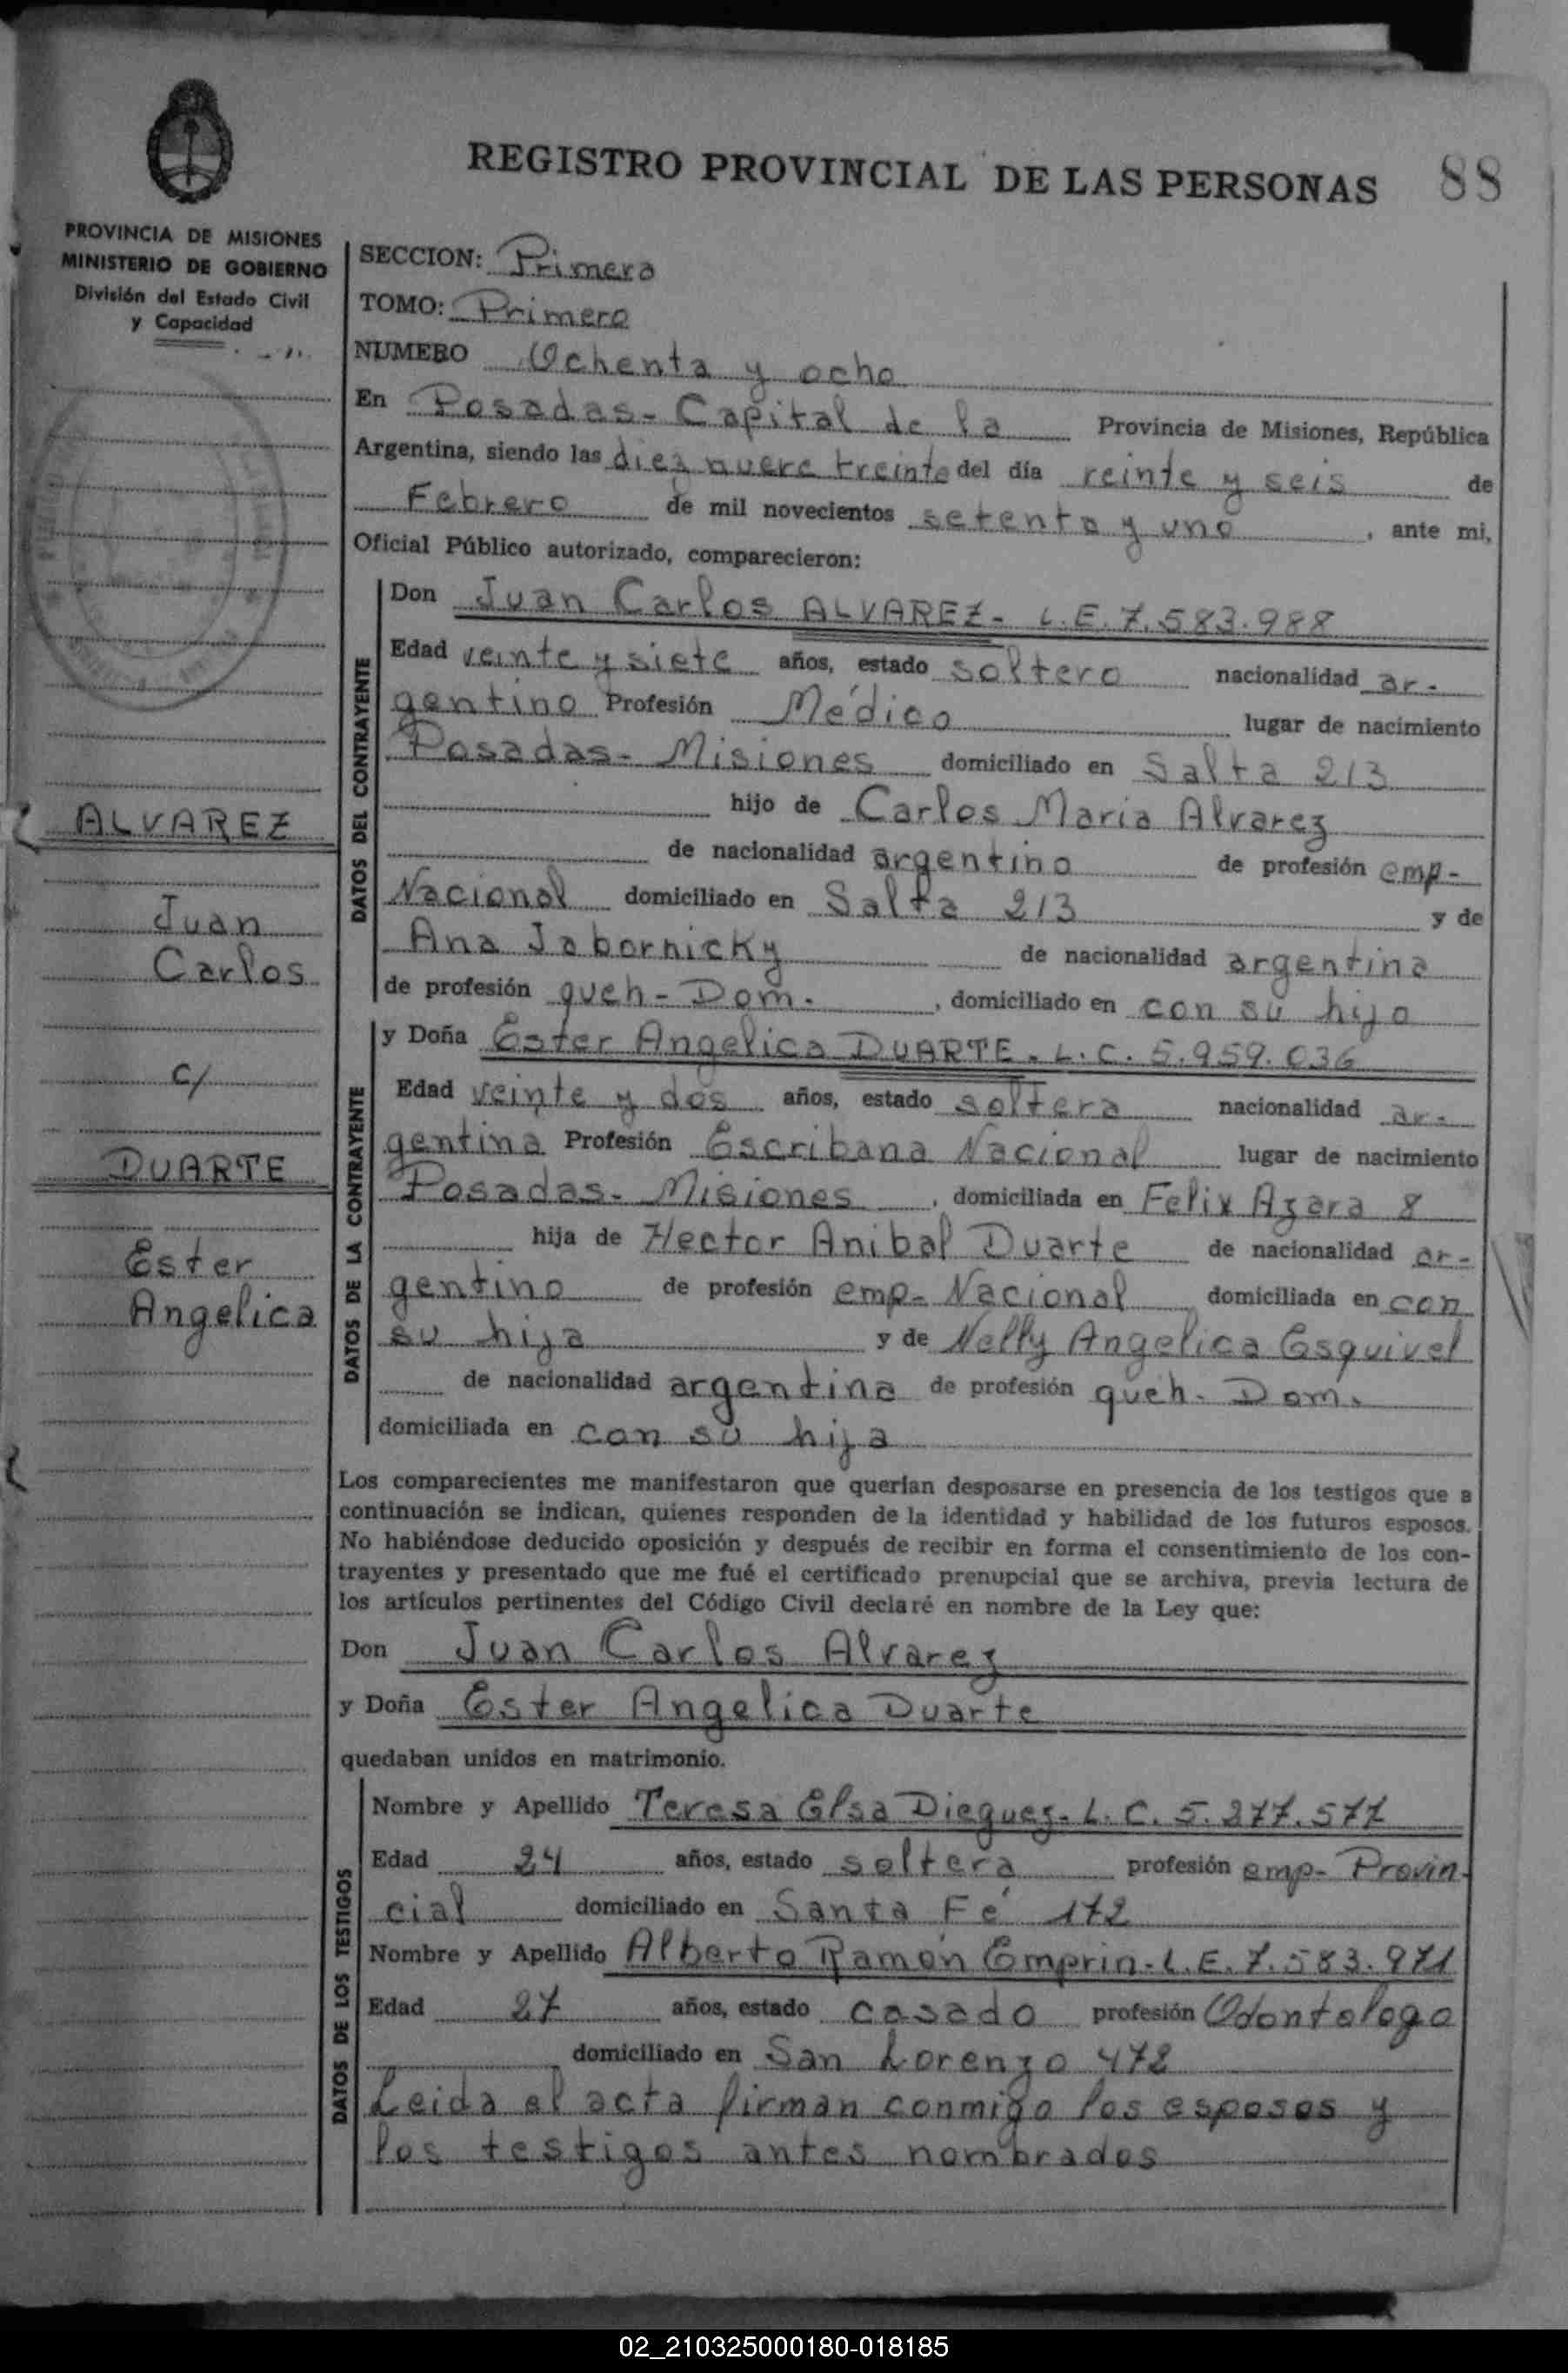 REGISTRO PROVINCIAL DE LAS PERSONAS 88
PROVINCIA DE MISIONES
MINISTERIO DE GOBIERNO
División del Estado Civil
y Capacidad
ALVAREZ
Juan
Carlos
c/
DUARTE
Ester
Angelica
SECCION: Primera
TOMO: Primero
NUMERO Ochenta y ocho
En Posadas - Capital de la Provincia de Misiones, República
Argentina, siendo las diez nueve treinta del día veinte y seis de
Febrero de mil novecientos setenta y uno, ante mi,
Oficial Público autorizado, comparecieron:
DATOS DEL CONTRAYENTE
Don Juan Carlos ALVAREZ - L.E. 7.583.988
Edad veinte y siete años, estado soltero nacionalidad ar-
gentino Profesión Médico lugar de nacimiento
Posadas - Misiones domiciliado en Salta 213
hijo de Carlos Maria Alvarez
de nacionalidad argentino de profesión emp-
Nacional domiciliado en Salta 213 y de
Ana Jabornicky de nacionalidad argentina
de profesión queh - Dom. , domiciliado en con su hijo
DATOS DE LA CONTRAYENTE
y Doña Ester Angelica DUARTE. L.C. 5.959.036
Edad veinte y dos años, estado soltera nacionalidad ar-
gentina Profesión Escribana Nacional lugar de nacimiento
Posadas - Misiones , domiciliada en Felix Azara 8
hija de Hector Anibal Duarte de nacionalidad ar-
gentino de profesión emp - Nacional domiciliada en con
su hija y de Nelly Angelica Esquivel
de nacionalidad argentina de profesión queh - Dom.
domiciliada en con su hija
Los comparecientes me manifestaron que querían desposarse en presencia de los testigos que a
continuación se indican, quienes responden de la identidad y habilidad de los futuros esposos.
No habiéndose deducido oposición y después de recibir en forma el consentimiento de los con-
trayentes y presentado que me fué el certificado prenupcial que se archiva, previa lectura de
los artículos pertinentes del Código Civil declaré en nombre de la Ley que:
Don Juan Carlos Alvarez
y Doña Ester Angelica Duarte
quedaban unidos en matrimonio.
DATOS DE LOS TESTIGOS
Nombre y Apellido Teresa Elsa Dieguez - L.C. 5.277.577
Edad 24 años, estado soltera profesión emp - Provin-
cial domiciliado en Santa Fé 172
Nombre y Apellido Alberto Ramón Emprin - L.E. 7.583.971
Edad 27 años, estado casado profesión Odontologo
domiciliado en San Lorenzo 472
Leida el acta firman conmigo los esposos y
los testigos antes nombrados
02_210325000180-018185